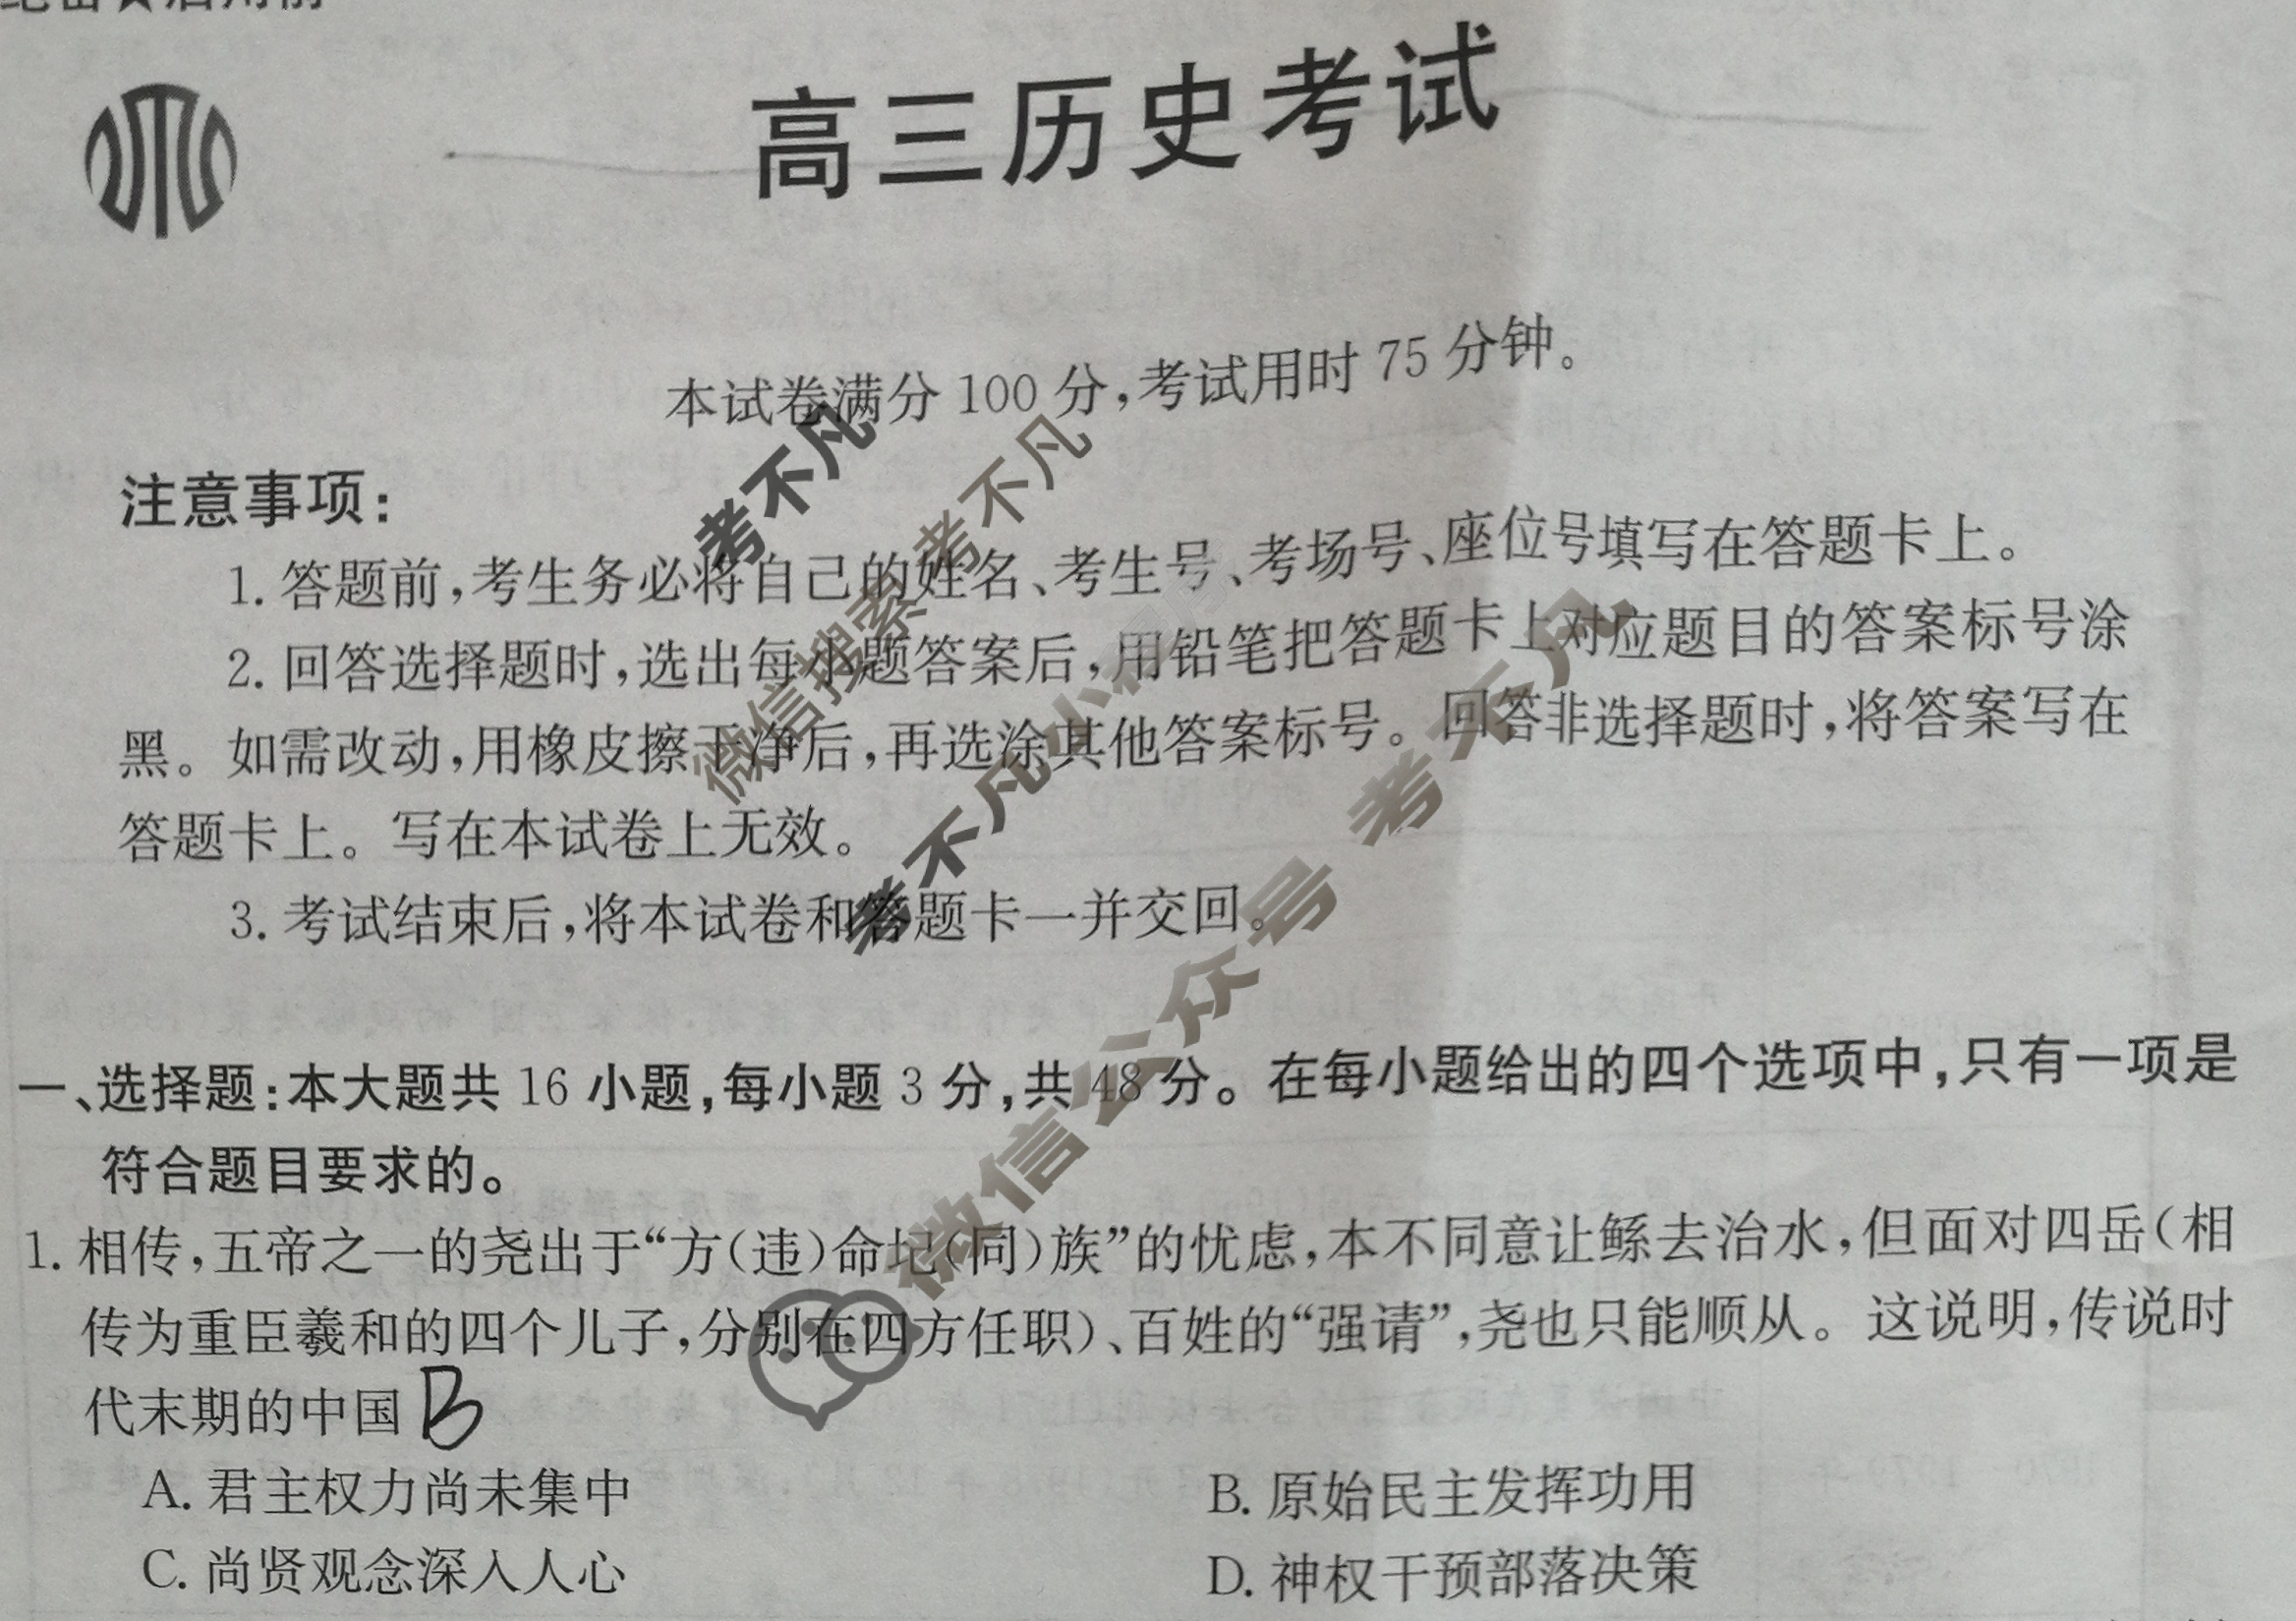 绝密★启用前
高三历史考试
本试卷满分 100 分,考试用时 75 分钟。
注意事项:
1. 答题前,考生务必将自己的姓名、考生号、考场号、座位号填写在答题卡上。
2. 回答选择题时,选出每小题答案后,用铅笔把答题卡上对应题目的答案标号涂
黑。如需改动,用橡皮擦干净后,再选涂其他答案标号。回答非选择题时,将答案写在
答题卡上。写在本试卷上无效。
3. 考试结束后,将本试卷和答题卡一并交回。
一、选择题:本大题共 16 小题,每小题 3 分,共 48 分。在每小题给出的四个选项中,只有一项是
符合题目要求的。
1. 相传,五帝之一的尧出于“方(违)命圮(同)族”的忧虑,本不同意让鲧去治水,但面对四岳(相
传为重臣羲和的四个儿子,分别在四方任职)、百姓的“强请”,尧也只能顺从。这说明,传说时
代末期的中国 B
A. 君主权力尚未集中
B. 原始民主发挥功用
C. 尚贤观念深入人心
D. 神权干预部落决策
考不凡
微信搜索 考不凡
考不凡小程序
微信公众号 考不凡